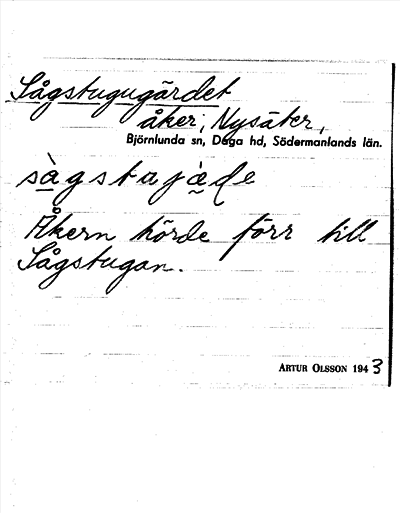 Sågstugugärdet
åker, Nysäter,
Björnlunda sn, Daga hd, Södermanlands län.
sågstajäde
Åkern hörde förr till
Sågstugan.
ARTUR OLSSON 1943